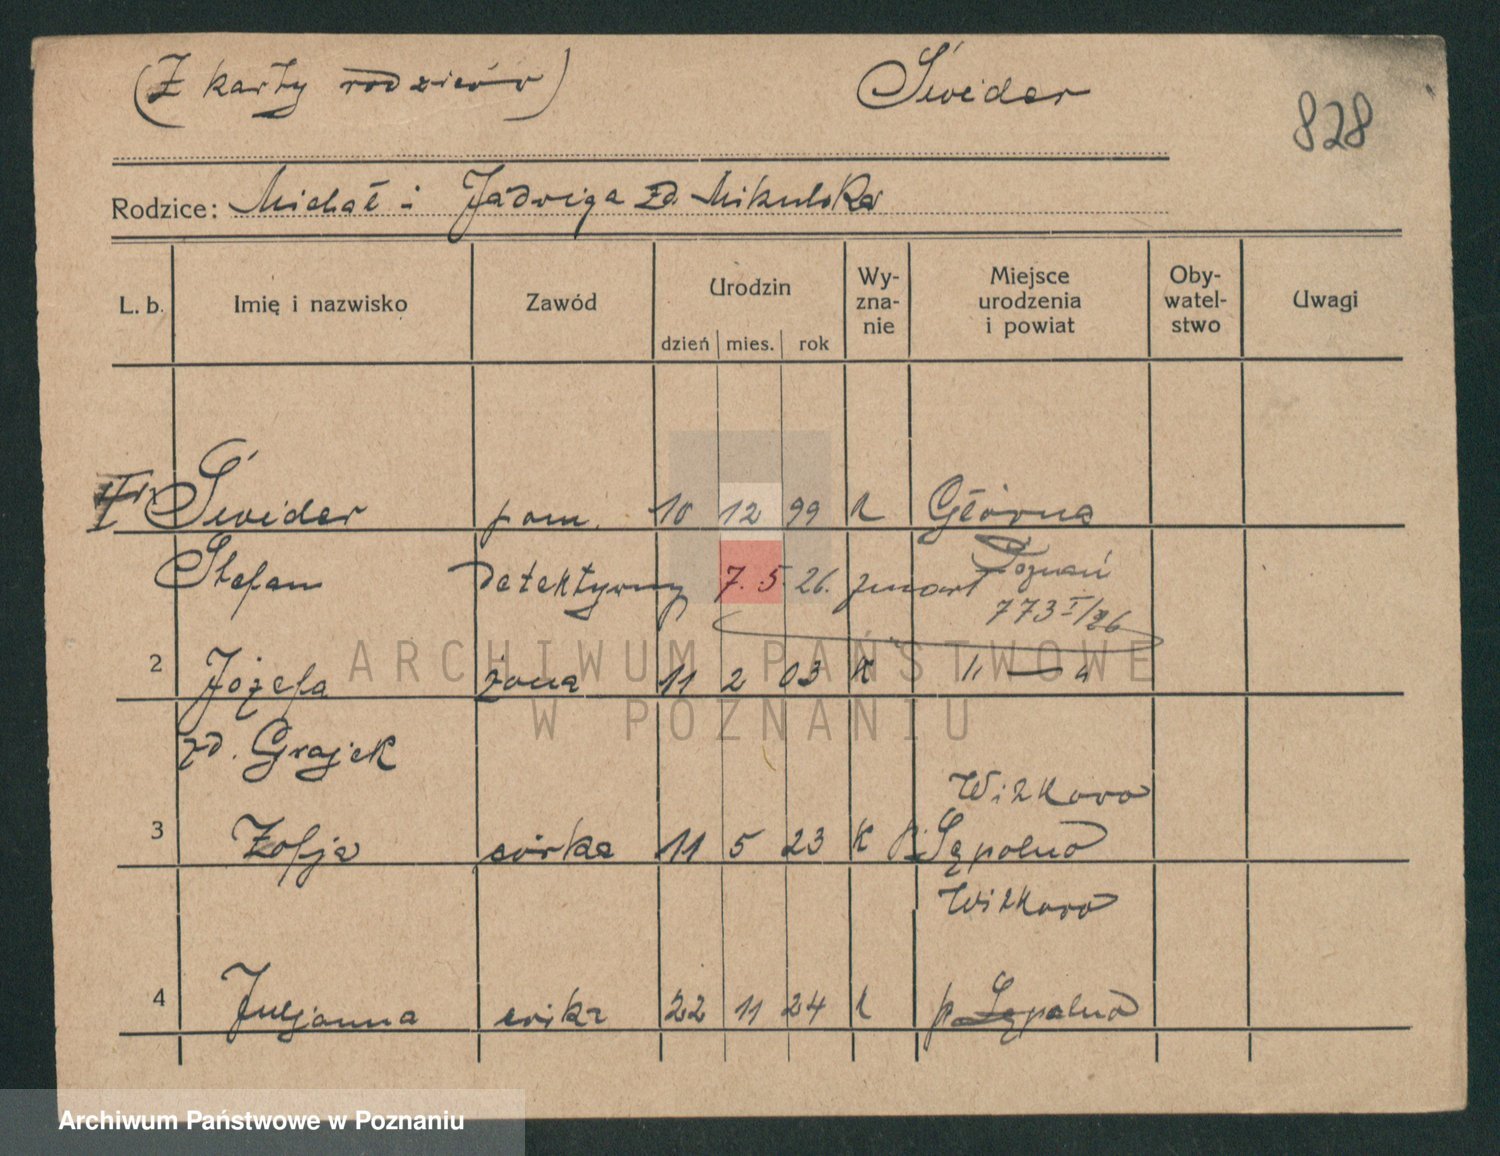 (Z karty rodziców)
Świder
828
Rodzice: Michał i Jadwiga zd. Mikulska
L. b.
Imię i nazwisko
Zawód
Urodzin
dzień
mies.
rok
Wy-
zna-
nie
Miejsce
urodzenia
i powiat
Oby-
watel-
stwo
Uwagi
Świder pom. 10 12 99 k Główna
Stefan Detektywny 7. 5. 26. zmarł Poznań
773 I/26
2 Józefa żona 11 2 03 K " — "
zd. Grajek
Witkowo
3 Zofja córka 11 5 23 K p. Sępolno
Witkowo
4 Juljanna córka 22 11 24 k p. Sępolno
ARCHIWUM PAŃSTWOWE
W POZNANIU
Archiwum Państwowe w Poznaniu